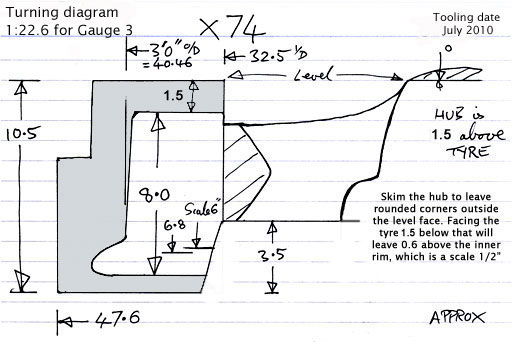 Turning diagram
1:22.6 for Gauge 3
X 74
Tooling date
July 2010
3'0" O/D
= 40.46
32.5 I/D
Level
0
1.5
10.5
HUB is
1.5 above
TYRE
8.0
Scale 6"
6.8
3.5
Skim the hub to leave
rounded corners outside
the level face. Facing the
tyre 1.5 below that will
leave 0.6 above the inner
rim, which is a scale 1/2"
47.6
APPROX